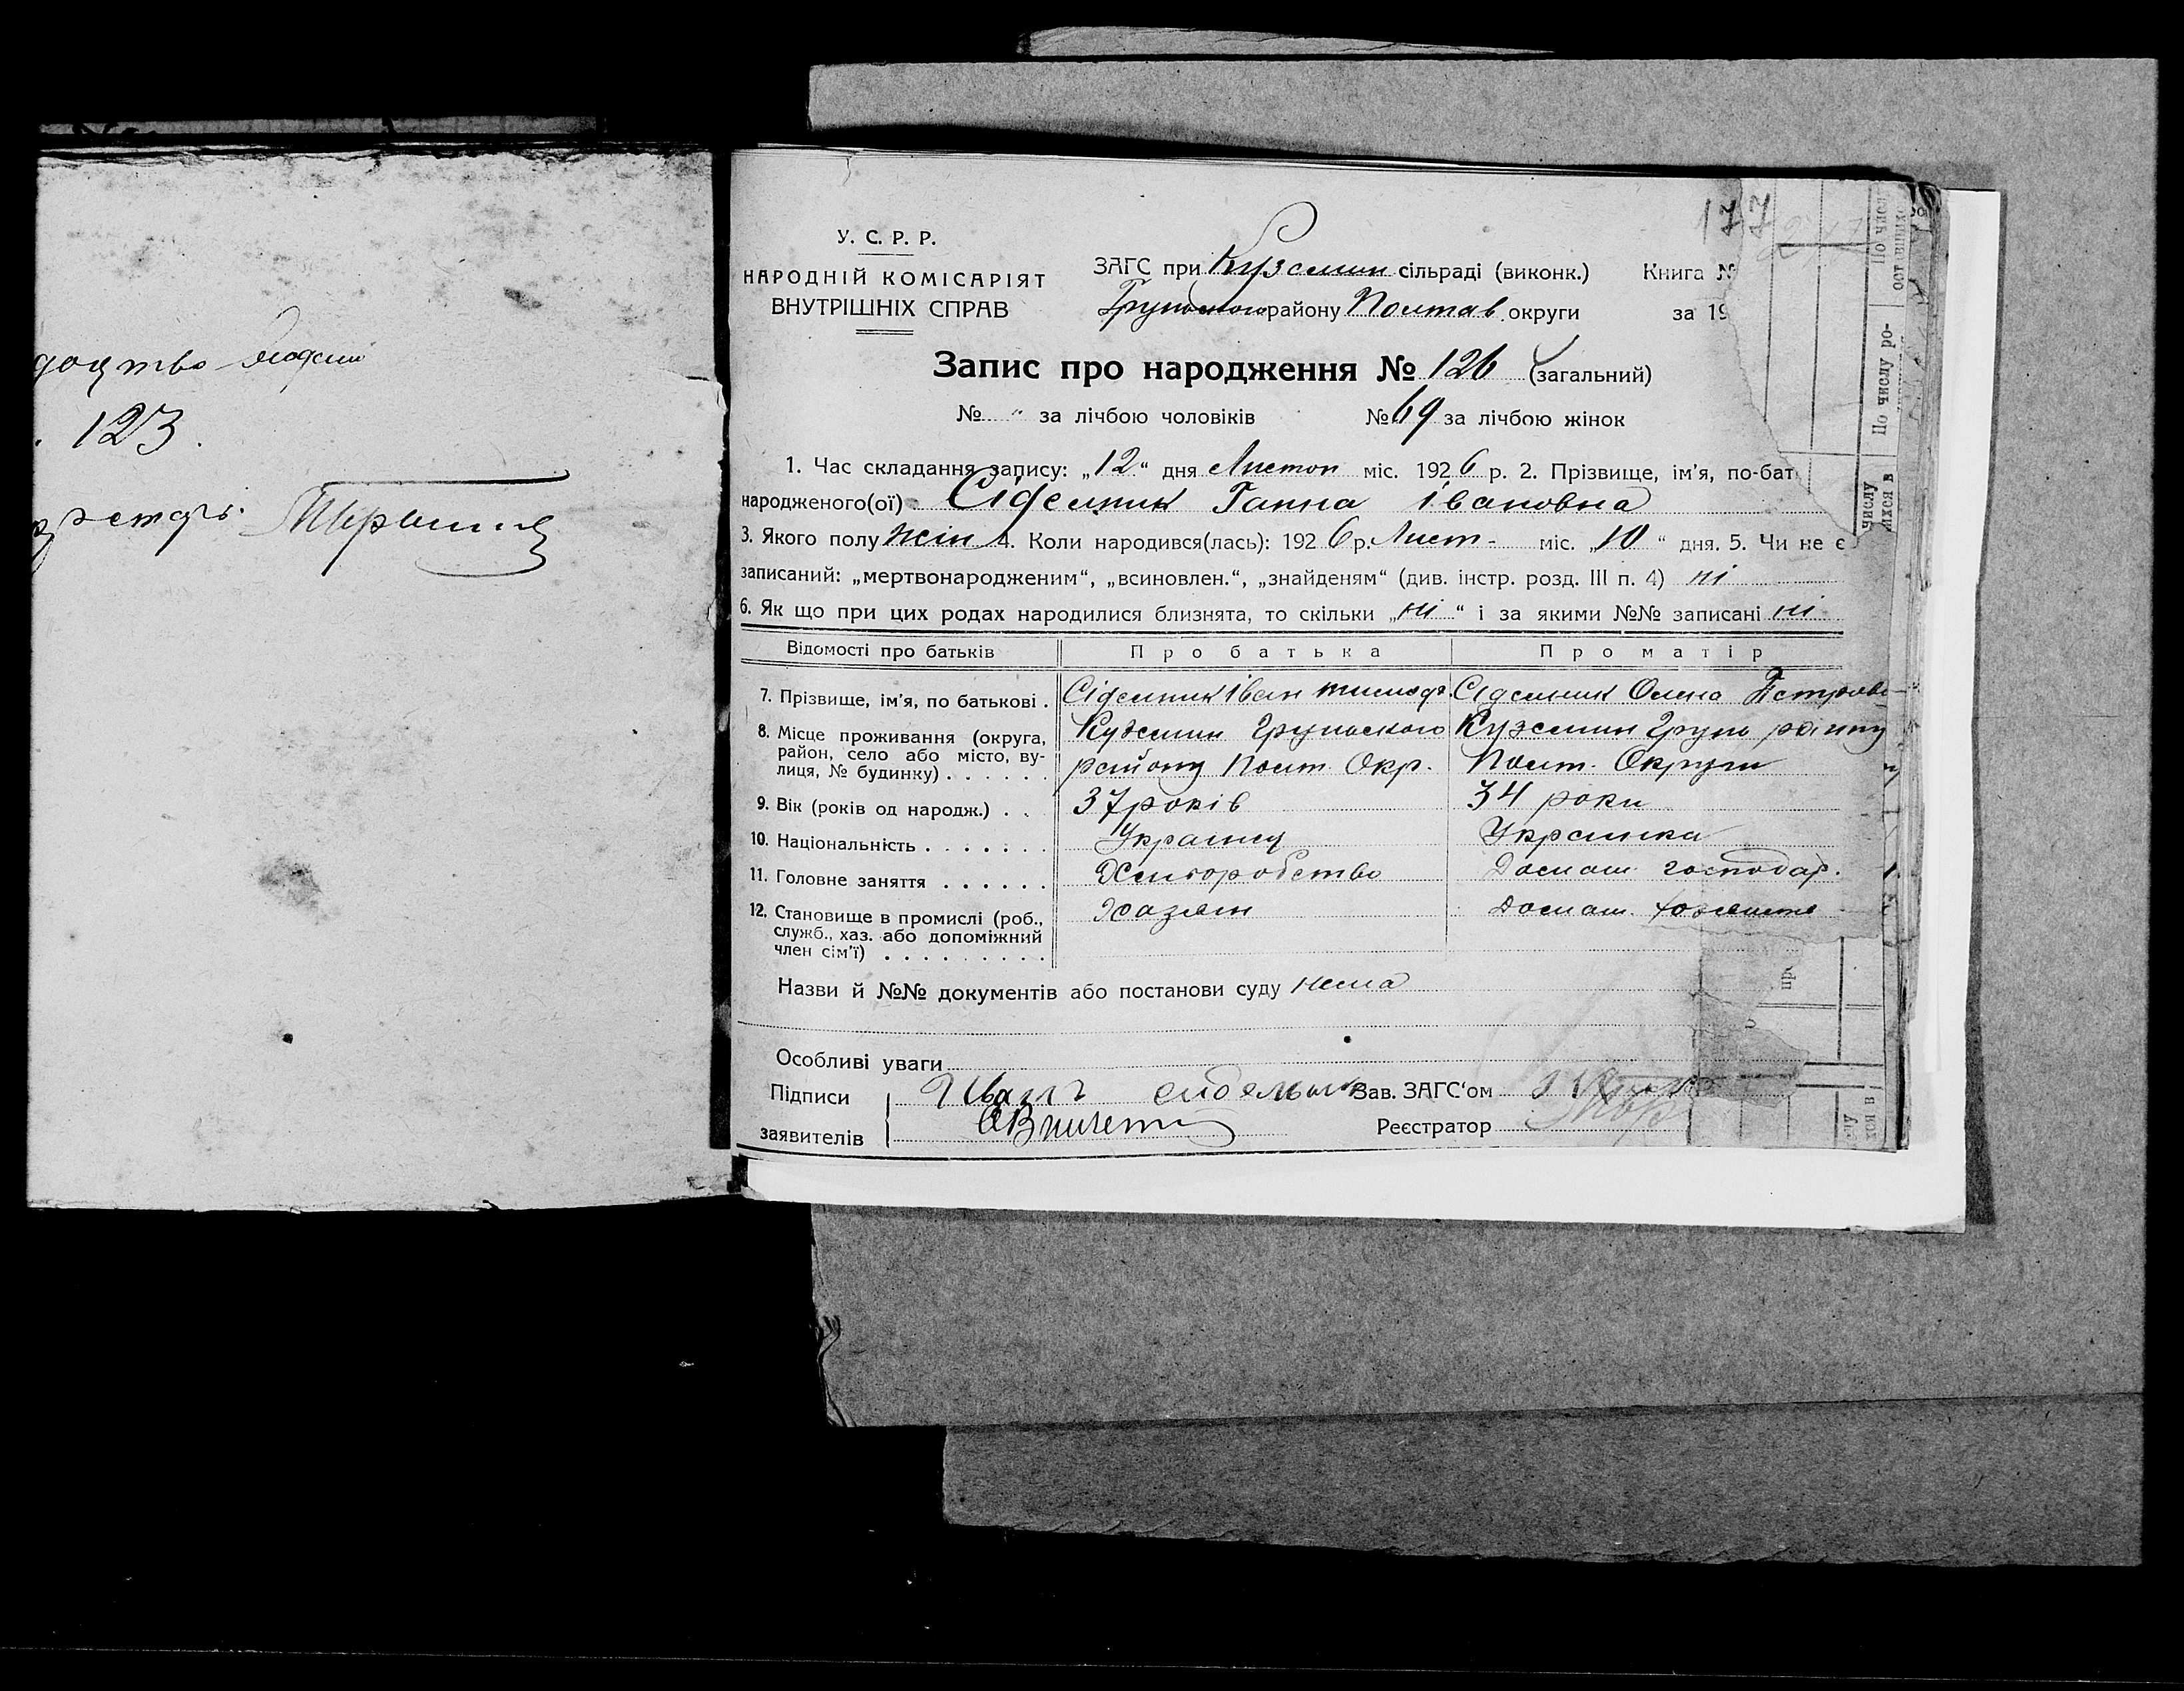 123.
177
У. С. Р. Р.
НАРОДНІЙ КОМІСАРІЯТ
ВНУТРІШНІХ СПРАВ
ЗАГС при Кузємин сільраді (виконк.) Книга №
Грунського району Полтав. округи за 19
Запис про народження № 126 (загальний)
№ " за лічбою чоловіків № 69 за лічбою жінок
1. Час складання запису: „12“ дня Листоп міс. 1926 р. 2. Прізвище, ім'я, по-бат
народженого(ої) Сідельник Ганна Івановна
3. Якого полу жін 4. Коли народився(лась): 1926 р. Лист- міс. „10“ дня. 5. Чи не є
записаний: „мертвонародженим“, „всиновлен.“, „знайденям“ (див. інстр. розд. III п. 4) ні
6. Як що при цих родах народилися близнята, то скільки „ні“ і за якими №№ записані ні
Відомості про батьків Про батька Про матір
7. Прізвище, ім'я, по батькові . Сідельник Іван Сідельник Олена Петровн
8. Місце проживання (округа, район, село або місто, вулиця, № будинку) . . . . . .
Куземин Грунського Куземин Грунь району
району Полт. Окр. Полт. Округи
9. Вік (років од народж.) . . 37 років 34 роки
10. Національність . . . . . . . Українец Українка
11. Головне заняття . . . . . . Хліборобство Домаш. господар.
12. Становище в промислі (роб., служб., хаз. або допоміжний член сім'ї) . . . . . . . . . Хазяїн Домаш.
Назви й №№ документів або постанови суду нема
Особливі уваги
Підписи Иванъ сидельник Зав. ЗАГС'ом
заявителів Реєстратор
По числу
По числу ро-
числу